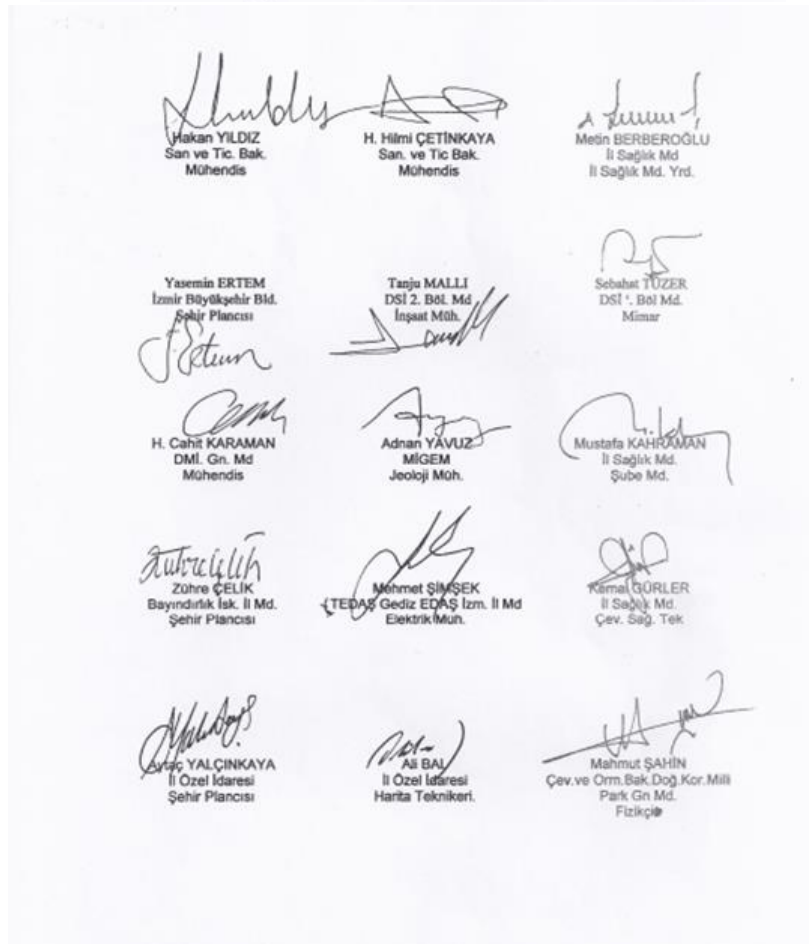 Hakan YILDIZ
San ve Tic. Bak.
Mühendis
H. Hilmi ÇETİNKAYA
San. ve Tic Bak.
Mühendis
Metin BERBEROĞLU
İl Sağlık Md
İl Sağlık Md. Yrd.
Yasemin ERTEM
İzmir Büyükşehir Bld.
Şehir Plancısı
Tanju MALLI
DSİ 2. Böl. Md
İnşaat Müh.
Sebahat TÜZER
DSİ '. Böl Md.
Mimar
H. Cahit KARAMAN
DMİ. Gn. Md
Mühendis
Adnan YAVUZ
MİGEM
Jeoloji Müh.
Mustafa KAHRAMAN
İl Sağlık Md.
Şube Md.
Zühre ÇELİK
Bayındırlık İsk. İl Md.
Şehir Plancısı
Mehmet ŞİMŞEK
(TEDAŞ Gediz EDAŞ İzm. İl Md
Elektrik Müh.
Kemal GÜRLER
İl Sağlık Md.
Çev. Sağ. Tek
Aytaç YALÇINKAYA
İl Özel İdaresi
Şehir Plancısı
Ali BAL
İl Özel İdaresi
Harita Teknikeri.
Mahmut ŞAHİN
Çev.ve Orm.Bak.Doğ.Kor.Milli
Park Gn Md.
Fizikçi